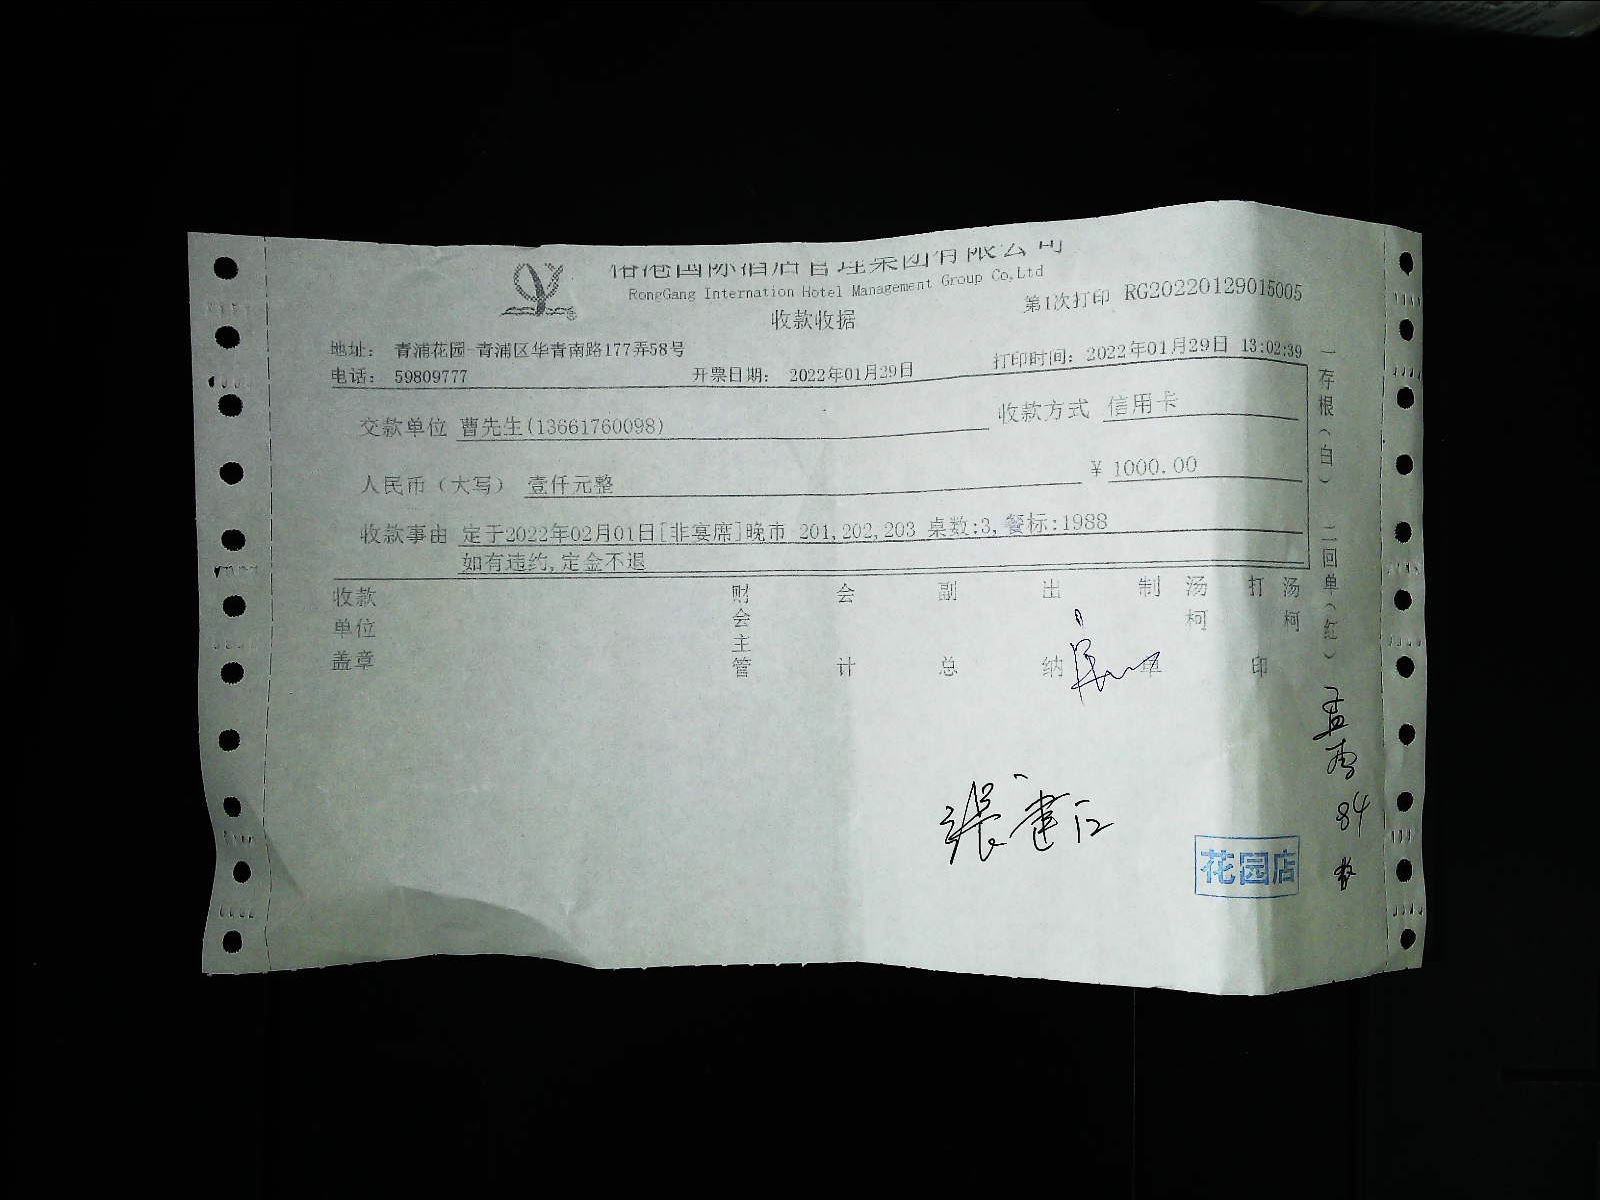 国际酒店管理集团有限公司
RongGang Internation Hotel Management Group Co,Ltd
第1次打印 RG20220129015005
收款收据
地址： 青浦花园-青浦区华青南路177弄58号
打印时间：2022年01月29日 13:02:39
电话： 59809777
开票日期： 2022年01月29日
交款单位 曹先生(13661760098)
收款方式 信用卡
人民币（大写） 壹仟元整
¥ 1000.00
收款事由 定于2022年02月01日[非宴席]晚市 201,202,203 桌数:3,餐标:1988
如有违约,定金不退
收款单位盖章
财会主管
会计
副总
出纳
制单
汤柯
打印
汤柯
一存根（白） 二回单（红）
84
花园店